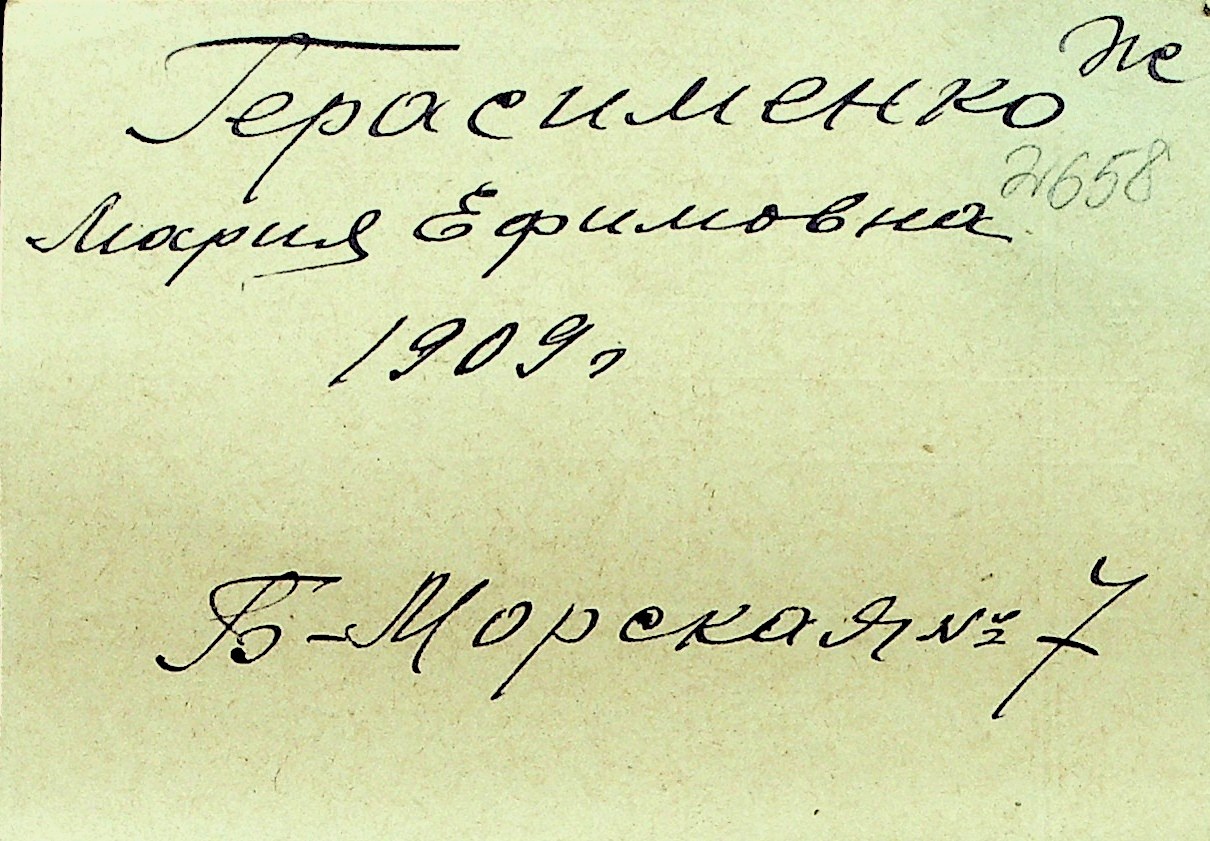 Герасименко
Мария Ефимовна
1909 г
Б-Морская № 7